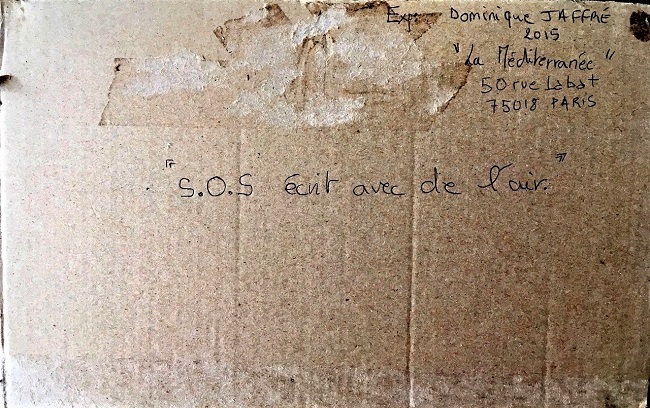 Exp: Dominique JAFFRÉ
2015
"La Méditerranée"
50 rue Labat
75018 PARIS
"S.O.S écrit avec de l'air."